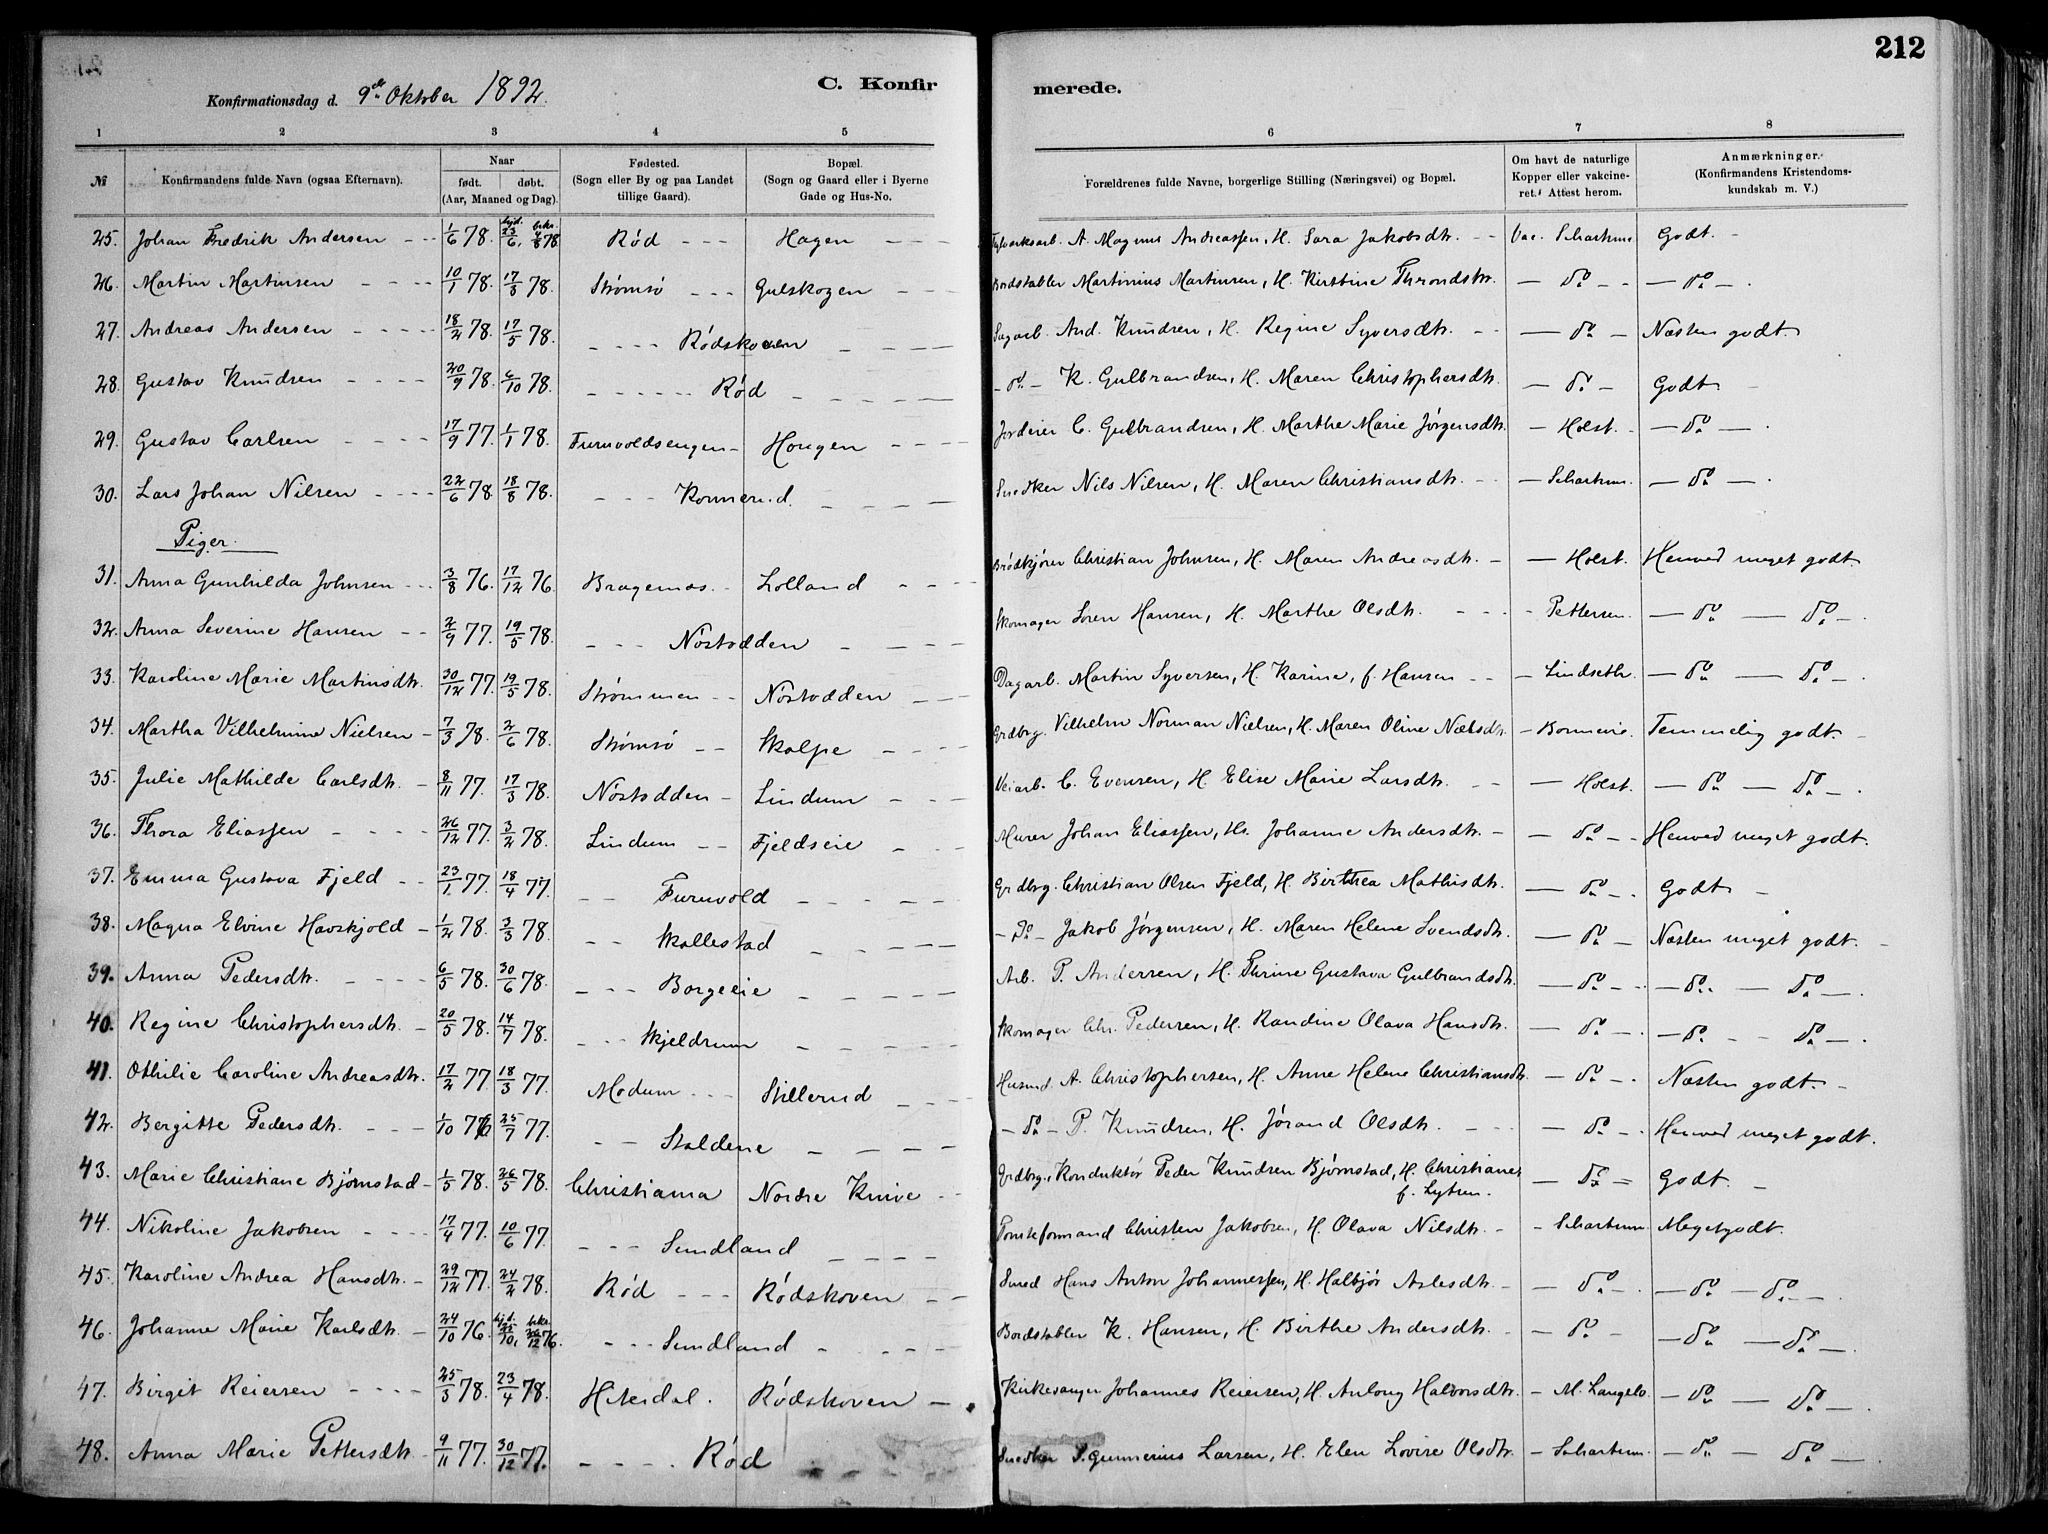 212
Konfirmationsdag d. 9de Oktober 1892.
C. Konfirmerede.
1 2 3 4 5 6 7 8
№ Konfirmandens fulde Navn (ogsaa Efternavn). Naar født. døbt. (Aar, Maaned og Dag). Fødested. (Sogn eller By og paa Landet tillige Gaard). Bopæl. (Sogn og Gaard eller i Byerne Gade og Hus-No. Forældrenes fulde Navne, borgerlige Stilling (Næringsvei) og Bopæl. Om havt de naturlige Kopper eller vakcineret. Attest herom. Anmærkninger. (Konfirmandens Kristendomskundskab m. V.)
25. Johan Fredrik Andersen 1/6 78. hjd. 23/6, bekr. 4/8 78 Rød Hagen A. Magnus Andreassen, H. Sara Jakobsdtr. Vac. Schartum Godt
26. Martin Martinsen 10/1 78. 17/3 78. Strømsø Gulskogen Bordstabler Martinius Martinsen, H. Kirstine Throndsdtr. do do
27. Andreas Andersen 18/2 78. 17/5 78. Rødskoven Sagarb. And. Knudsen, H. Regine Syversdtr. do Næsten godt.
28. Gustav Knudsen 20/9 78. 6/10 78. Rød do K. Gulbrandsen, H. Maren Christophersdtr. do Godt
29. Gustav Carlsen 17/9 77. 1/1 78. Furuvoldsengen Hougen Jordeier C. Gulbrandsen, H. Marthe Marie Jørgensdtr. Holst. do
30. Lars Johan Nilsen 22/6 78 18/8 78. Konnerud. Snedker Nils Nilsen, H. Maren Christiansdtr. Schartum. do
Piger.
31. Anna Gunhilda Johnsen 3/8 76. 17/12 76. Bragernæs Lolland Brødkjører Christian Johnsen, H. Maren Andreasdtr. Holst. Henved meget godt.
32. Anna Severine Hansen 2/9 77. 19/5 78. Nøstodden Skomager Søren Hansen, H. Marthe Olsdtr. Pettersen do do
33. Karoline Marie Martinsdtr. 30/12 77. 19/5 78. Strømmen Nøstodden Dagarb. Martin Syversen, H. Karine, f. Hansen Lindseth. do do
34. Martha Vilhelmine Nielsen 7/3 78. 2/6 78. Strømsø Skalpe Grdbrg. Vilhelm Norman Nielsen, H. Maren Oline Nielsdtr. Bonnevie. Temmelig godt.
35. Julie Mathilde Carlsdtr. 8/11 77. 17/3 78. Nøstodden Lindum Veiarb. C. Evensen, H. Elise Marie Larsdtr. Holst. do do
36. Thora Eliassen 26/12 77. 3/2 78. Lindum Fjeldseie Murer Johan Eliassen, H. Johanne Andersdtr. do Henved meget godt.
37. Emma Gustava Fjeld 23/1 77. 18/4 77. Furuvold Grdbrg. Christian Olsen Fjeld, H. Birthea Mathisdtr. do Godt
38. Magna Elvine Havskjold 1/2 78. 3/3 78. Skallestad do Jakob Jørgensen, H. Maren Helene Svendsdtr. do Næsten meget godt.
39. Anna Pedersdtr. 6/5 78. 30/6 78. Borgeeie Arb. P. Andersen, H. Thrine Gustava Gulbrandsdtr. do do do
40. Regine Christophersdtr. 20/5 78. 14/7 78. Skjeldrum Skomager Chr. Pedersen, H. Randine Olava Hansdtr. do do do
41. Othilie Caroline Andreasdtr. 17/2 77. 18/3 77. Modum Stillerud Husmd. A. Christophersen, H. Anne Helene Christiansdtr. do Næsten godt.
42. Bergitte Pedersdtr. 1/10 76 25/7 77. Staldene do P. Knudsen, H. Jørand Olsdtr. do Henved meget godt.
43. Marie Christiane Bjørnstad 1/5 78. 26/5 78. Christiania Nordre Knive Grdbrg., Konduktør Peder Knudsen Bjørnstad, H. Christiane, f. Lytsen. do Godt.
44. Nikoline Jakobsen 17/4 77. 10/6 77. Sundland Tomteformand Christen Jakobsen, H. Olava Nilsdtr. Schartum. Meget godt.
45. Karoline Andrea Hansdtr. 29/12 77. 24/2 78. Rød Rødskoven Smed Hans Anton Johannessen, H. Halbjør Aslesdtr. do do do
46. Johanne Marie Karlsdtr. 24/10 76. hjd. 25/10, bekr. 26/12 76. Sundland Bordstabler K. Hansen, H. Birthe Andersdtr. do do do
47. Birgit Reiersen 25/3 78. 23/4 78. Hitterdal. Rødskoven Kirkesanger Johannes Reiersen, H. Anlaug Halvorsdtr. M. Langelo do do
48. Anna Marie Pettersdtr. 9/11 77. 30/12 77. Rød Snedker P. Gunnerius Larsen, H. Elen Lovise Olsdtr. Schartum. do do